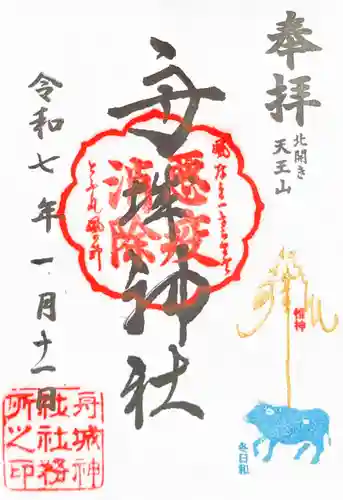 奉拝
北開き
天王山
舟城神社
悪疫
消除
令和七年一月十一日
冬日和
舟城神
社社務
所之印